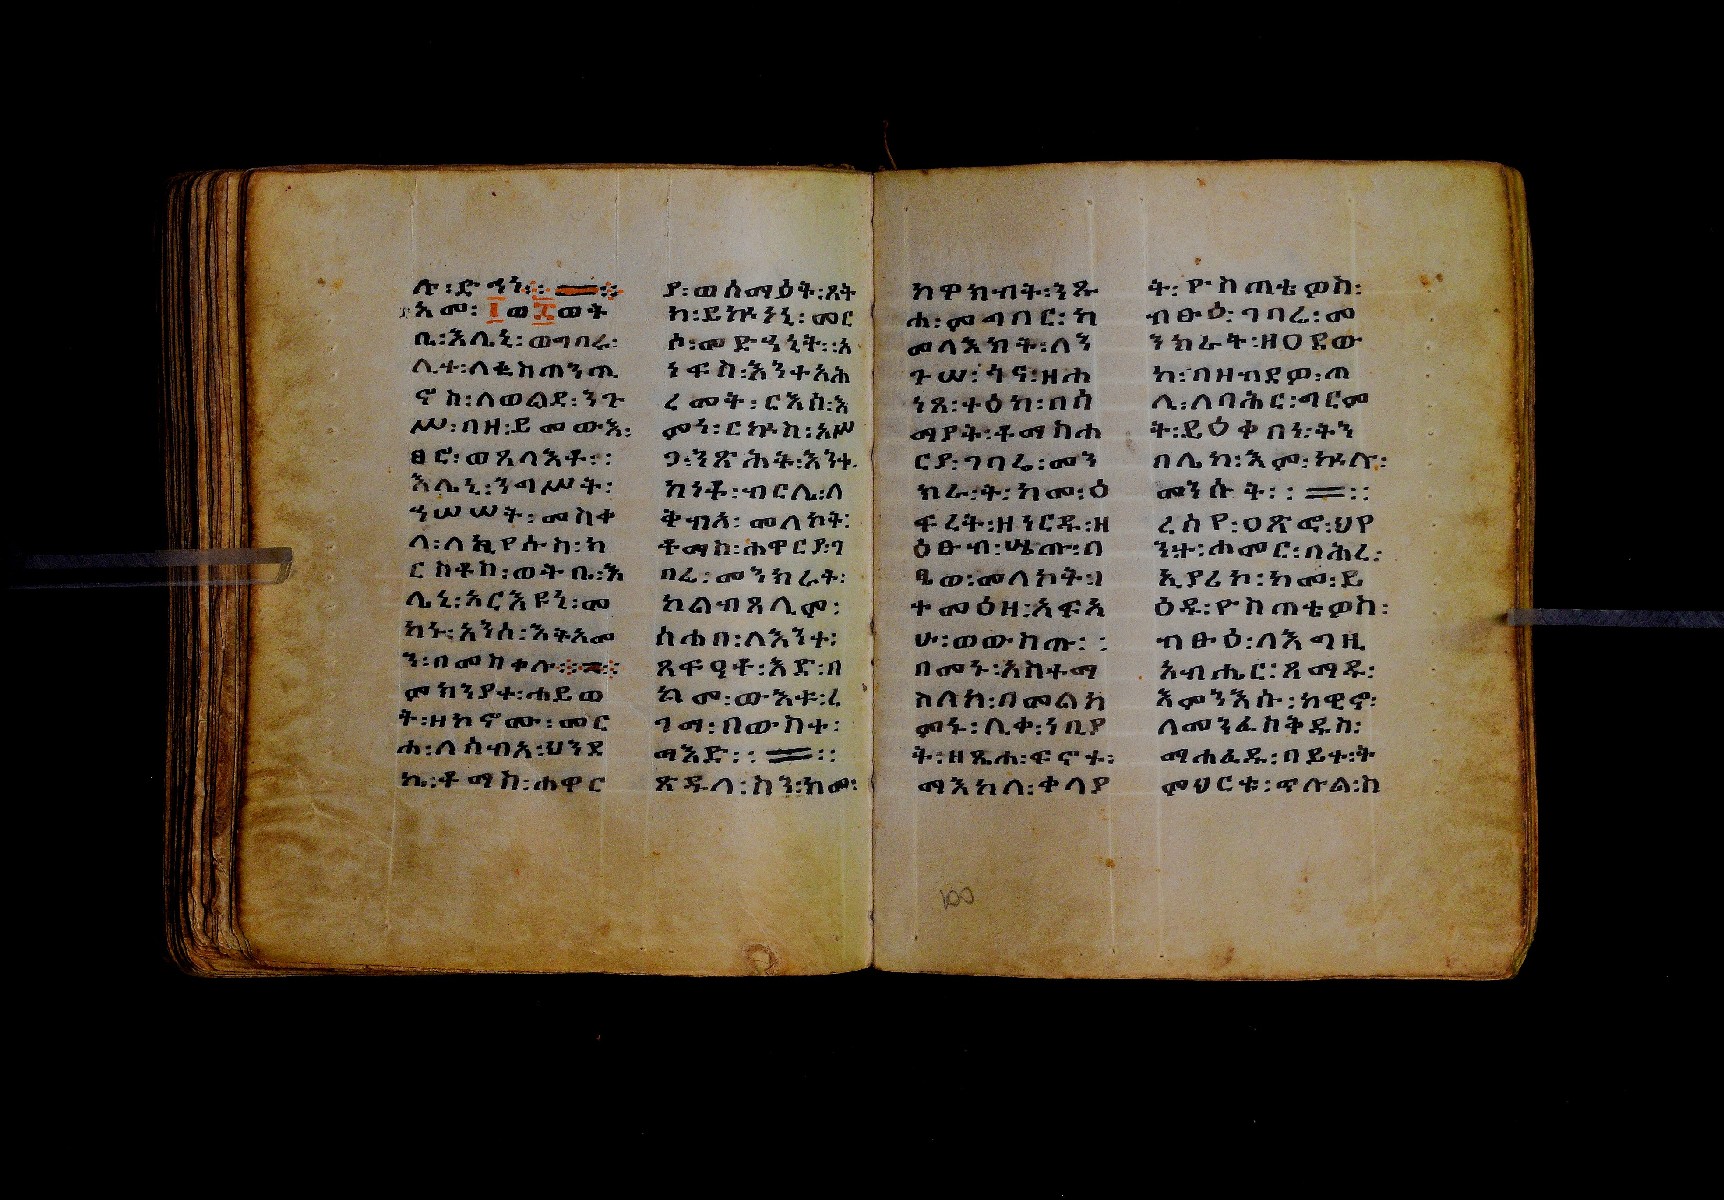 ሉ፡ድኅን።
አመ፡፲ወ፯ወት
ቤ፡እሌኒ፡ወግባሬ፡
ሊተ፡ለቈስጠንጢ
ኖስ፡ለወልደ፡ንጉ
ሥ፡በዘ፡ይመውእ፡
ፀሮ፡ወጸላእቶ።
እሌኒ፡ንግሥት፡
ኀሠሠት፡መስቀ
ለ፡ለኢየሱስ፡ክ
ርስቶስ፡ወትቤ፡እ
ሌኒ፡አርእዩኒ፡መ
ካኑ፡አንሰ፡እትአመ
ን፡በመስቀሉ።
ምክንያተ፡ሐይወ
ት፡ዘክኖሙ፡መር
ሐ፡ለሰብአ፡ህንደ
ኬ፡ቶማስ፡ሐዋር
ያ፡ወሰማዕት፡ጸት
ከ፡ይኩነኒ፡መር
ሶ፡መድኀኒት፡አ
ነፍስ፡እንተአሕ
ረመት፡ርእሰ፡እ
ምነ፡ርኩስ፡አሥ
ጋ፡ንጽሕት፡እንተ
ከነቶ፡ብርሌ፡ለ
ቅብአ፡መለኮት፡
ቶማስ፡ሐዋርያ፡ገ
ባሬ፡መንክራት፡
ከልብ፡ጸሊም፡
ሰሐበ፡ለእንተ፡
ጸፍዓቶ፡እድ፡በ
ከመ፡ውእቱ፡ረ
ገማ፡በውስተ፡
ማእድ።
ጽዱላ፡ስን፡ከመ፡
ከዋክብት፡ንጹ
ሐ፡ምግባር፡ከ
መላእክት፡ለን
ጉሠ፡ሳና፡ዘሐ
ነጸ፡ተዕካ፡በሰ
ማያት፡ቶማስሐ
ርያ፡ገባሬ፡መን
ክራ፡ት፡ከመ፡ዕ
ፍረት፡ዘነርዱ፡ዘ
ዕፁብ፡ሤጡ፡በ
ዔወ፡መለኮት፡ገ
ተመዕዘ፡አፍአ
ሁ፡ወውስጡ።
በመኑ፡አስተማ
ስለከ፡በመልከ
ምኑ፡ሊቀ፡ነቢያ
ት፡ዘጼሐ፡ፍኖተ፡
ማእከለ፡ቀላያ
ት፡ዮስጠቴዎስ፡
ብፁዕ፡ገባሬ፡መ
ንክራት፡ዘዐደው
ከ፡በዘብደዎ፡ጠ
ሊ፡ለባሕር፡ግርም
ት፡ይዕቀበነ፡ትን
በሌከ፡እም፡ኵሉ፡
መንሱት።
ረሰየ፡ዐጽፎ፡ህየ
ንተ፡ሐመር፡በሕረ፡
ኢያሪኮ፡ከመ፡ይ
ዕዱ፡ዮስጠቴዎስ፡
ብፁዕ፡ለእግዚ
አብሔር፡ጸማዱ፡
እምንእሱ፡ከዊኖ፡
ለመንፈስቅዱስ፡
ማሐፈዱ፡በይተ፡ት
ምህርቱ፡ጥሉል፡ከ
100